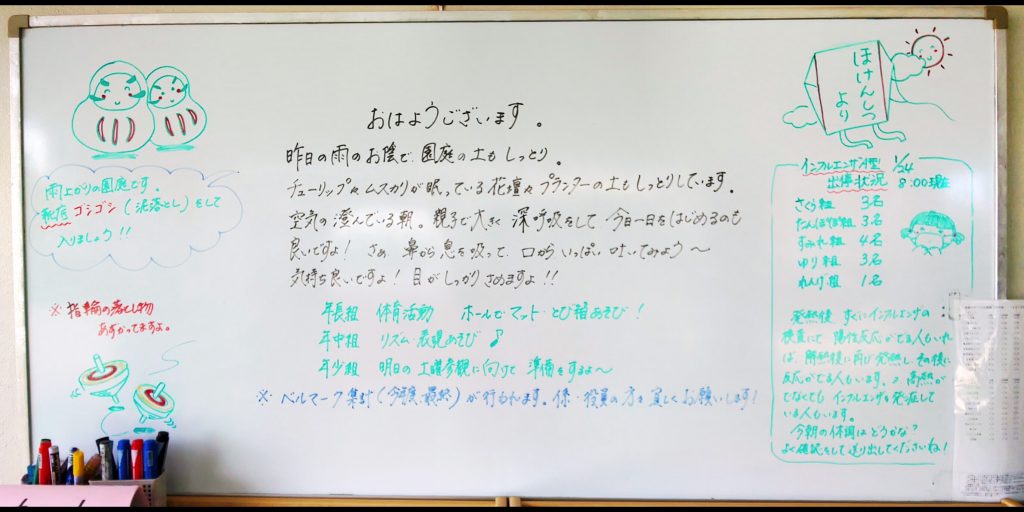 おはようございます。
昨日の雨のお陰で、園庭の土もしっとり。
チューリップやムスカリが眠っている花壇やプランターの土もしっとりしています。
空気の澄んでいる朝。親子で大きく深呼吸をして今日一日をはじめるのも
良いですよ！さぁ鼻から息を吸って、口からいっぱい吐いてみよう〜
気持ち良いですよ！目がしっかりさめますよ!!
年長組 体育活動 ホールでマット・とび箱あそび！
年中組 リズム・表現あそび♪
年少組 明日の土曜参観に向けて準備をするよ〜
※ベルマーク集計(今年度最終)が行われます。係・役員の方も宜しくお願いします！
雨上がりの園庭です。
靴底ゴシゴシ(泥落とし)をして
入りましょう!!
※指輪の落とし物
あずかってますよ。
ほけんしつ
より
インフルエンザA型 1/24
出停状況 8:00現在
さくら組 3名
たんぽぽ組 3名
すみれ組 4名
ゆり組 3名
れんげ組 1名
発熱後すぐにインフルエンザの
検査にて陽性反応がでる人もいれ
ば、解熱後に再び発熱し、その後に
反応がでる人もいます。又高熱が
でなくてもインフルエンザを発症して
いる人もいます。
今朝の体調はどうかな？
よく確認をして送り出してくださいね！